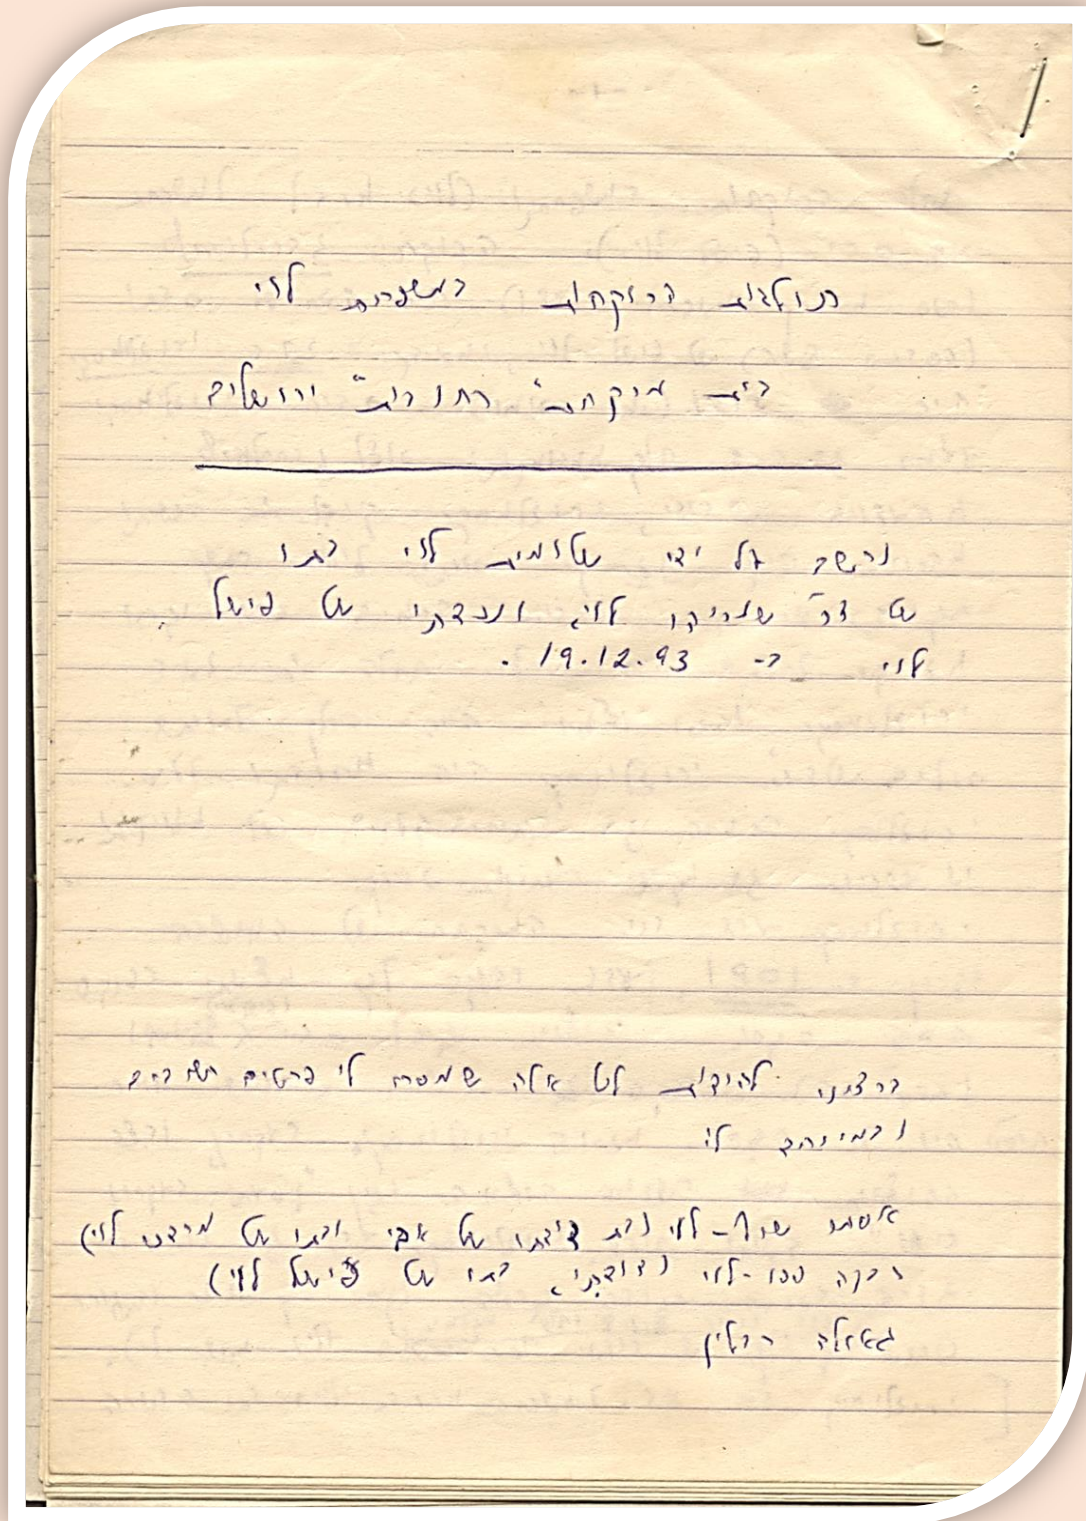 תולדות הרוקחות במשפחת לוי
בית מרקחת "רחובות" ירושלים
נרשם על ידי שולמית לוי בתו
של דר' שלריקו לוי ונכדתו של פישל
לוי ב- 19.12.93.
ברצוני להודות לכל אלה שמסרו לי פרטים חשובים
ובמיוחד ל:
אסתר שיף-לוי (בת דודתו של אבי ובתו של מרדכי לוי)
רבקה ספו-לוי (דודתי, בתו של פישל לוי)
גאולה ברלין